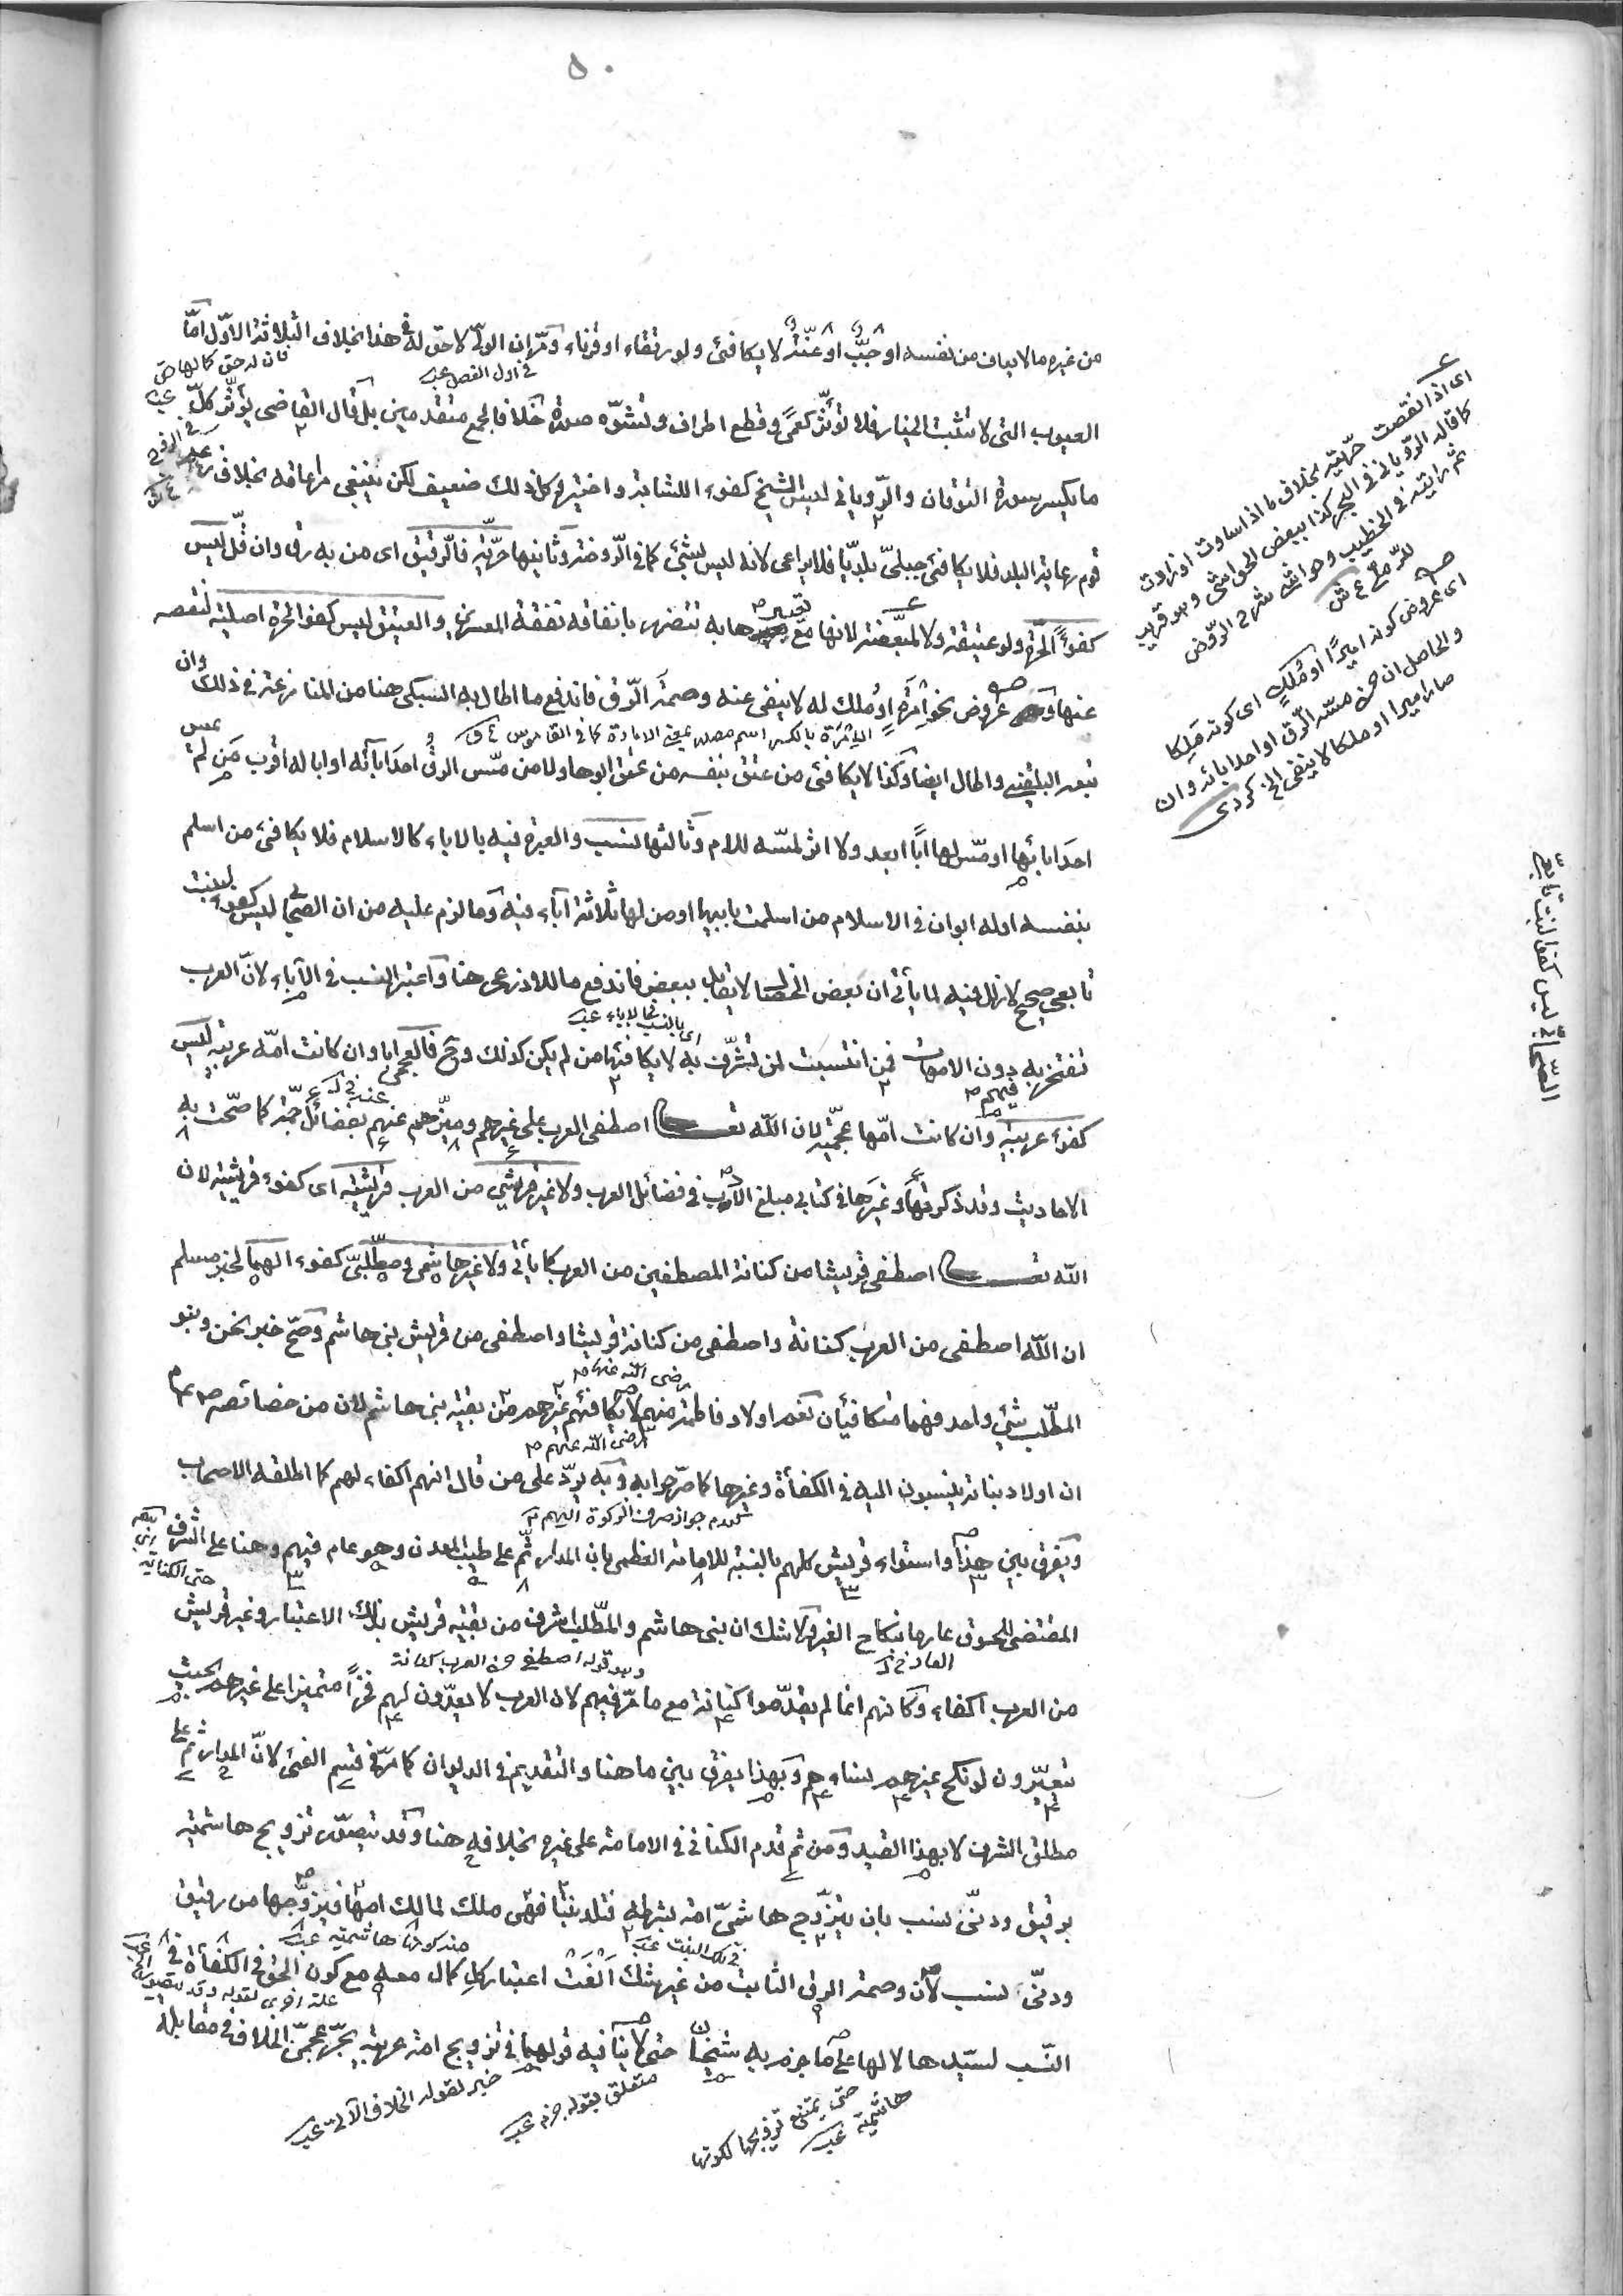 ٥٠
من غيره ما لا يعاف من نفسه او جبّ او عنّة لا يكافئ ولو رتقاء او قرناء ومر ان الولي لا حق له في هذا بخلاف الثلاثة الاول امّا
في اول الفصل
العيوب التي لا تثبت الخيار فلا تؤثّر كعمى وقطع اطراف وتشوّه صورة خلافا لجمع متقدمين بل قال القاضي يؤثّر كلّ
ما يكسر سورة التوقان والروياني ليس الشيخ كفوء الشابة واختير وكل ذلك ضعيف لكن ينبغي مراعاته بخلاف
قوم رعاية البلد فلا يكافئ جبليّ بلديّا فلا يراعى لانه ليس بشيئ كما في الروضة وثانيها حرّيّة فالرقيق اى من به رق وان قلّ ليس
كفوأ لحرة ولو عتيقة ولا لمبعّضة لانها مع تعييرها به تتضرر بانفاقه نفقة المعسرين والعتيق ليس كفو الحرة اصلية لنقصه
عنها وعروض نحو امرة او ملك له لا ينفى عنه وصمة الرق فاندفع ما اطال به السبكى هنا من المنازعة في ذلك وان
الامرة بالكسر اسم مصدر بمعنى الامارة كما في القاموس
تبعه البلقيني واطال ايضا وكذا لا يكافئ من عتق بنفسه من عتق ابوها ولا من مسّ الرق احد آبائه او ابا له اقرب من لم يمس
احد ابائها او مسّ لها ابًا ابعد ولا اثر لمسّه للام وثالثها نسب والعبرة فيه بالاباء كالاسلام فلا يكافئ من اسلم
بنفسه او له ابوان في الاسلام من اسلمت بابيها او من لها ثلاثة آباء فيه وما لزم عليه من ان الصحابي ليس كفوء لبنت
تابعي صحيح لا زلل فيه لما يأتي ان بعض الخصال لا يقابل ببعض فاندفع ما للاذرعى هنا واعتبر النسب في الآباء لانّ العرب
اى بالنسب في الاباء
تفتخر به فيهم دون الامهات فمن انتسبت لمن تشرّف به لا يكافئها من لم يكن كذلك وح فالعجمى ابا وان كانت امّه عربية ليس
كفوء عربية وان كانت امّها عجميّة لان الله تعالى اصطفى العرب على غيرهم وميّزهم عنهم بفضائل جمّة كما صحّت به
الاحاديث وقد ذكرتها وغيرها في كتابي مبلغ الأرب في فضائل العرب ولا غير قرشي من العرب قرشيّة اى كفوء قرشية لان
الله تعالى اصطفى قريشا من كنانة المصطفين من العرب كما يأتي ولا غير هاشمي ومطّلبيّ كفوء الهما لخبر مسلم
ان الله اصطفى من العرب كنانة واصطفى من كنانة قريشا واصطفى من قريش بنى هاشم وصحّ خبر نحن وبنو
المطّلب شيئ واحد فهما متكافئان نعم اولاد فاطمة رضى الله عنها منهم لا يكافئهم غيرهم من بقية بنى هاشم لان من خصائصه
رضى الله عنهم
ان اولاد بناته ينسبون اليه في الكفأة وغيرها كما صرّحوا به وبه يردّ على من قال انهم اكفاء لهم كما اطلقه الاصحاب
كعدم جواز صرف الزكوة اليهم
ويفرق بين هذا واستواء قريش كلهم بالنسبة للامامة العظمى بان المدار ثمّ على طيب المعدن وهو عام فيهم وهنا على الشرف
المقتضى للحوق عار ما بنكاح الغير ولا شك ان بنى هاشم والمطّلب اشرف من بقية قريش بذلك الاعتبار وغير قريش حتى الكنانة
وهو قوله اصطفى من العرب كنانة
من العرب اكفاء وكانهم انما لم يقدّموا كنانة مع ما مرّ فيهم لان العرب لا يعدّون لهم فخرًا متميزا على غيرهم بحيث
يتعيّرون لو نكح غيرهم نساءهم وبهذا يفرق بين ما هنا والتقديم في الديوان كما مرّ في قسم الفئ لانّ المدار ثم على
مطلق الشرف لا بهذا القيد ومن ثم قدم الكناني في الامامة على غيره بخلافه هنا وقد يتصوّر تزويج هاشمية
برقيق ودنيّ نسب بان يتزوّج هاشميّ امة بشرطه فتلد بنتا فهى ملك لمالك امها فيزوّجها من رقيق
في تلك البنت
من كونها هاشمية
ودنيّ نسب لان وصمة الرق الثابت من غير شك الغت اعتبار كل كمال معه مع كون الحق في الكفأة في
علة اخرى لقوله وقد يتصور
النّسب لسيدها لا لها على ما جزم به شيخنا حتى لا ينافيه قولهما في تزويج امة عربية بحرّ عجمىّ الخلاف في مقابلة
حتى يمتنع تزويجها لكونها
هاشمية
متعلق بقوله جزم
خبر لقوله الخلاف الآتي
اى اذا نقصت حرّيته بخلاف ما اذا ساوت او زادت
كما قاله الروياني في البحر كذا ببعض الحواشى وهو قريب
ثم رايته في الخطيب وحواشى شرح الروض
للرملي ع ش
اى عروض كونه اميرًا او مُلك اى كونه مَلِكا
والحاصل ان من مسّه الرق او احد ابائه وان
صار اميرا او ملكا لا ينفى الخ كردى
الصحابيّ ليس كفو لبنت تابعيّ